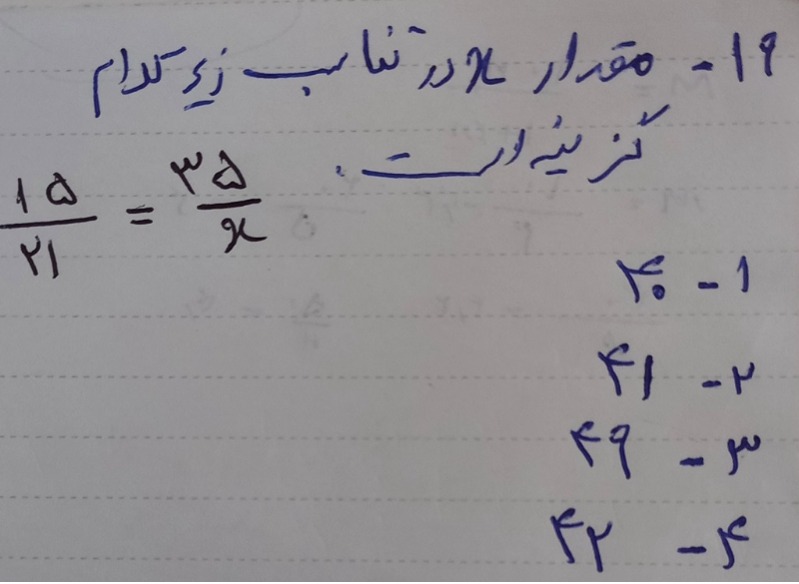 ۱۹- مقدار x در تناسب زیر کدام
گزینه است.
۱۵/۲۱ = ۳۵/x
۱- ۴۰
۲- ۴۱
۳- ۴۹
۴- ۴۲